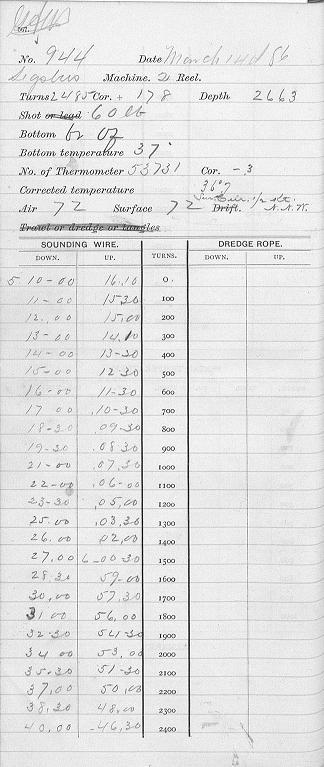 No. 944 Date March 14th 86
Sigsbee Machine. 2 Reel.
Turns 2485 Cor. + 178 Depth 2663
Shot or lead 60 lb
Bottom br Oz
Bottom temperature 37°
No. of Thermometer 53731 Cor. - 3
Corrected temperature 36°7
Air 72 Surface 72 Drift. N.N.W.
Trawl or dredge or tangles
SOUNDING WIRE. DREDGE ROPE.
DOWN. UP. TURNS. DOWN. UP.
5 10-00 16.10 0.
11-00 15.30 100
12.00 15.00 200
13-00 14.10 300
14-00 13-20 400
15-00 12 30 500
16-00 11-30 600
17 00 .10-30 700
18-30 .09-30 800
19-30 .08 30 900
21-00 .07.30 1000
22-00 .06-00 1100
23-30 .05.00 1200
25.00 .03.30 1300
26.00 02.00 1400
27.00 6-00 30 1500
28.30 59-00 1600
30.00 57.30 1700
31 00 56.00 1800
32-30 54-30 1900
34 00 53.00 2000
35-30 51-30 2100
37.00 50.00 2200
38.30 48.00 2300
40.00 -46.30 2400